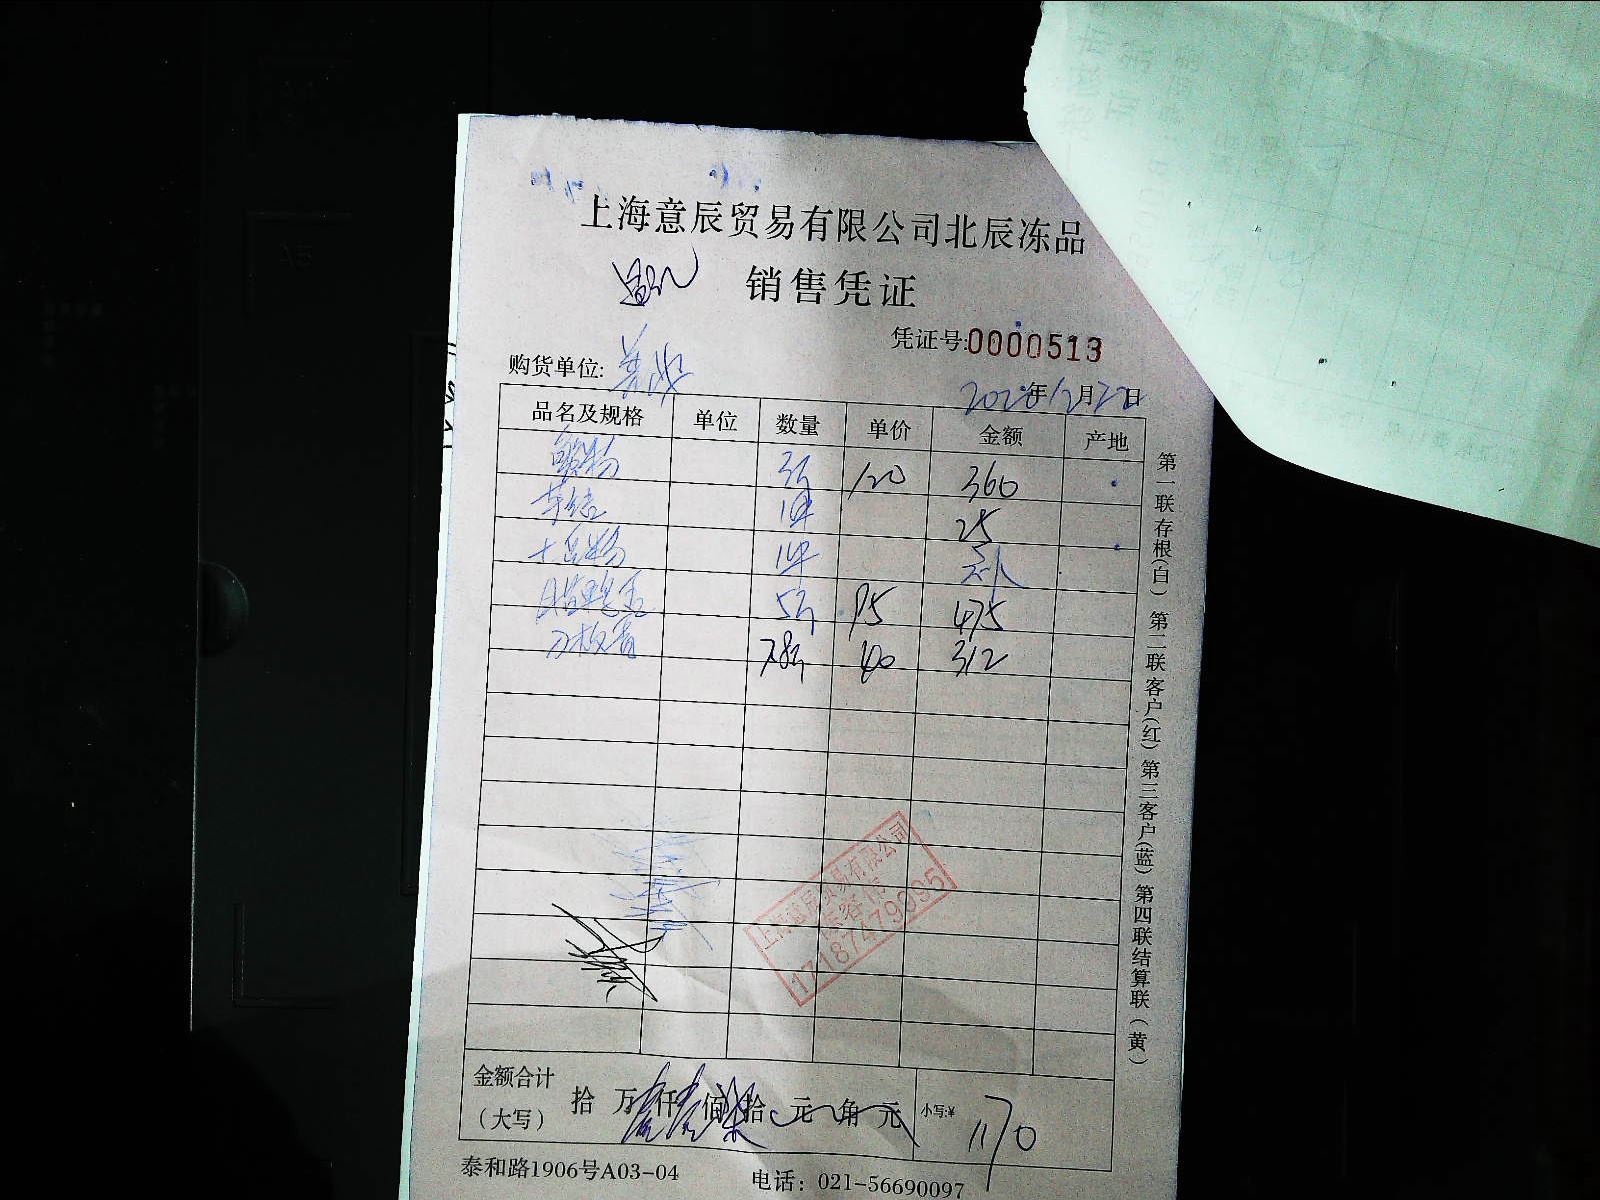 上海意辰贸易有限公司北辰冻品
销售凭证
凭证号:0000513
购货单位:
2020年12月22日
品名及规格 单位 数量 单价 金额 产地
3斤 120 360
1件 25
1件
5斤 95 475
刀板香 7.8斤 40 312
上海意辰贸易有限公司
17187479095
金额合计
(大写) 拾 万 壹仟 壹佰 柒拾 元 角 元 小写:¥ 1170
泰和路1906号A03-04 电话: 021-56690097
第一联存根(白) 第二联客户(红) 第三客户(蓝) 第四联结算联(黄)